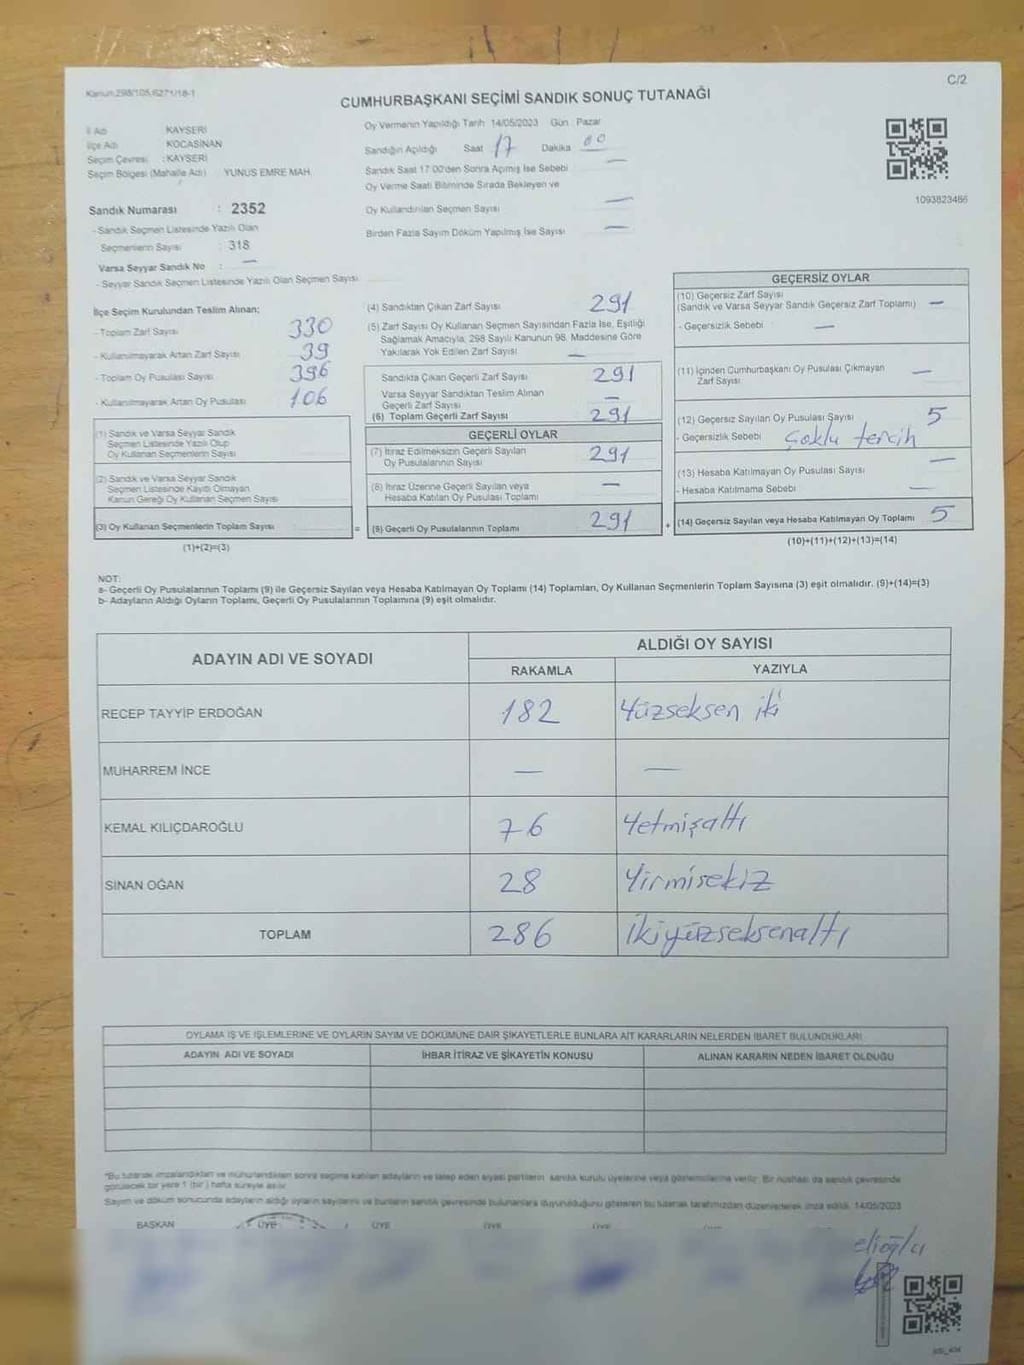 C/2
Kanun:298/105,6271/18-1
CUMHURBAŞKANI SEÇİMİ SANDIK SONUÇ TUTANAĞI
İl Adı KAYSERİ
İlçe Adı KOCASİNAN
Seçim Çevresi :KAYSERİ
Seçim Bölgesi (Mahalle Adı) YUNUS EMRE MAH.
Sandık Numarası : 2352
- Sandık Seçmen Listesinde Yazılı Olan
Seçmenlerin Sayısı : 318
Varsa Seyyar Sandık No : —
- Seyyar Sandık Seçmen Listesinde Yazılı Olan Seçmen Sayısı
Oy Vermenin Yapıldığı Tarih 14/05/2023 Gün : Pazar
Sandığın Açıldığı Saat 17 Dakika 00
Sandık Saat 17:00'den Sonra Açımış İse Sebebi —
Oy Verme Saati Bitiminde Sırada Bekleyen ve
Oy Kullandırılan Seçmen Sayısı —
Birden Fazla Sayım Döküm Yapılmış İse Sayısı —
1093823486
İlçe Seçim Kurulundan Teslim Alınan:
- Toplam Zarf Sayısı 330
- Kullanılmayarak Artan Zarf Sayısı 39
- Toplam Oy Pusulası Sayısı 396
- Kullanılmayarak Artan Oy Pusulası 106
(1) Sandık ve Varsa Seyyar Sandık
Seçmen Listesinde Yazılı Olup
Oy Kullanan Seçmenlerin Sayısı
(2) Sandık ve Varsa Seyyar Sandık
Seçmen Listesinde Kayıtlı Olmayan
Kanun Gereği Oy Kullanan Seçmen Sayısı
(3) Oy Kullanan Seçmenlerin Toplam Sayısı =
(1)+(2)=(3)
(4) Sandıktan Çıkan Zarf Sayısı 291
(5) Zarf Sayısı Oy Kullanan Seçmen Sayısından Fazla İse, Eşitliği
Sağlamak Amacıyla, 298 Sayılı Kanunun 98. Maddesine Göre
Yakılarak Yok Edilen Zarf Sayısı —
Sandıkta Çıkan Geçerli Zarf Sayısı 291
Varsa Seyyar Sandıktan Teslim Alınan
Geçerli Zarf Sayısı —
(6) Toplam Geçerli Zarf Sayısı 291
GEÇERLİ OYLAR
(7) İtiraz Edilmeksizin Geçerli Sayılan
Oy Pusulalarının Sayısı 291
(8) İtiraz Üzerine Geçerli Sayılan veya
Hesaba Katılan Oy Pusulası Toplamı —
(9) Geçerli Oy Pusulalarının Toplamı 291 +
GEÇERSİZ OYLAR
(10) Geçersiz Zarf Sayısı
(Sandık ve Varsa Seyyar Sandık Geçersiz Zarf Toplamı) —
- Geçersizlik Sebebi —
(11) İçinden Cumhurbaşkanı Oy Pusulası Çıkmayan
Zarf Sayısı —
(12) Geçersiz Sayılan Oy Pusulası Sayısı 5
- Geçersizlik Sebebi Çoklu tercih
(13) Hesaba Katılmayan Oy Pusulası Sayısı —
- Hesaba Katılmama Sebebi —
(14) Geçersiz Sayılan veya Hesaba Katılmayan Oy Toplamı 5
(10)+(11)+(12)+(13)=(14)
NOT:
a- Geçerli Oy Pusulalarının Toplamı (9) ile Geçersiz Sayılan veya Hesaba Katılmayan Oy Toplamı (14) Toplamları, Oy Kullanan Seçmenlerin Toplam Sayısına (3) eşit olmalıdır. (9)+(14)=(3)
b- Adayların Aldığı Oyların Toplamı, Geçerli Oy Pusulalarının Toplamına (9) eşit olmalıdır.
ADAYIN ADI VE SOYADI ALDIĞI OY SAYISI
RAKAMLA YAZIYLA
RECEP TAYYİP ERDOĞAN 182 Yüzseksen iki
MUHARREM İNCE — —
KEMAL KILIÇDAROĞLU 76 Yetmişaltı
SİNAN OĞAN 28 Yirmisekiz
TOPLAM 286 İkiyüzseksenaltı
OYLAMA İŞ VE İŞLEMLERİNE VE OYLARIN SAYIM VE DÖKÜMÜNE DAİR ŞİKAYETLERLE BUNLARA AİT KARARLARIN NELERDEN İBARET BULUNDUKLARI
ADAYIN ADI VE SOYADI İHBAR İTİRAZ VE ŞİKAYETİN KONUSU ALINAN KARARIN NEDEN İBARET OLDUĞU
"Bu tutanak imzalandıktan ve mühürlendikten sonra seçime katılan adayların ve talep eden siyasi partilerin sandık kurulu üyelerine veya gözlemcilerine verilir. Bir nüshası da sandık çevresinde
görülecek bir yere 1 (bir ) hafta süreyle asılır.
Sayım ve döküm sonucunda adayların aldığı oyların sayılarını ve bunların sandık çevresinde bulunanlara duyurulduğunu gösteren bu tutanak tarafımızdan düzenlenerek imza edildi. 14/05/2023
BAŞKAN ÜYE ÜYE ÜYE ÜYE
elioğlu